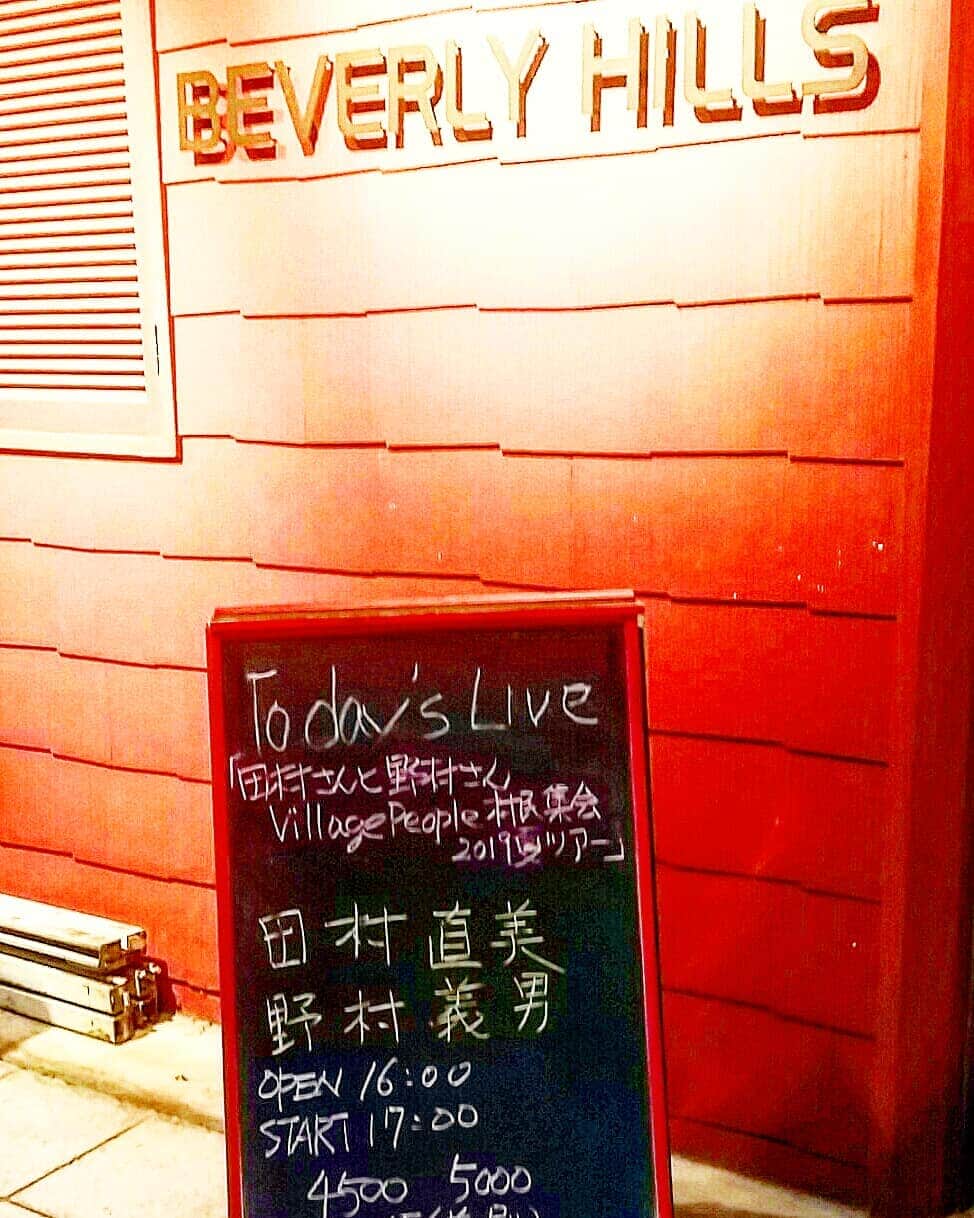 BEVERLY HILLS
Today's Live
「田村さんと野村さん
Village People 村民集会
2019夏ツアー」
田村直美
野村義男
OPEN 16:00
START 17:00
4500 5000